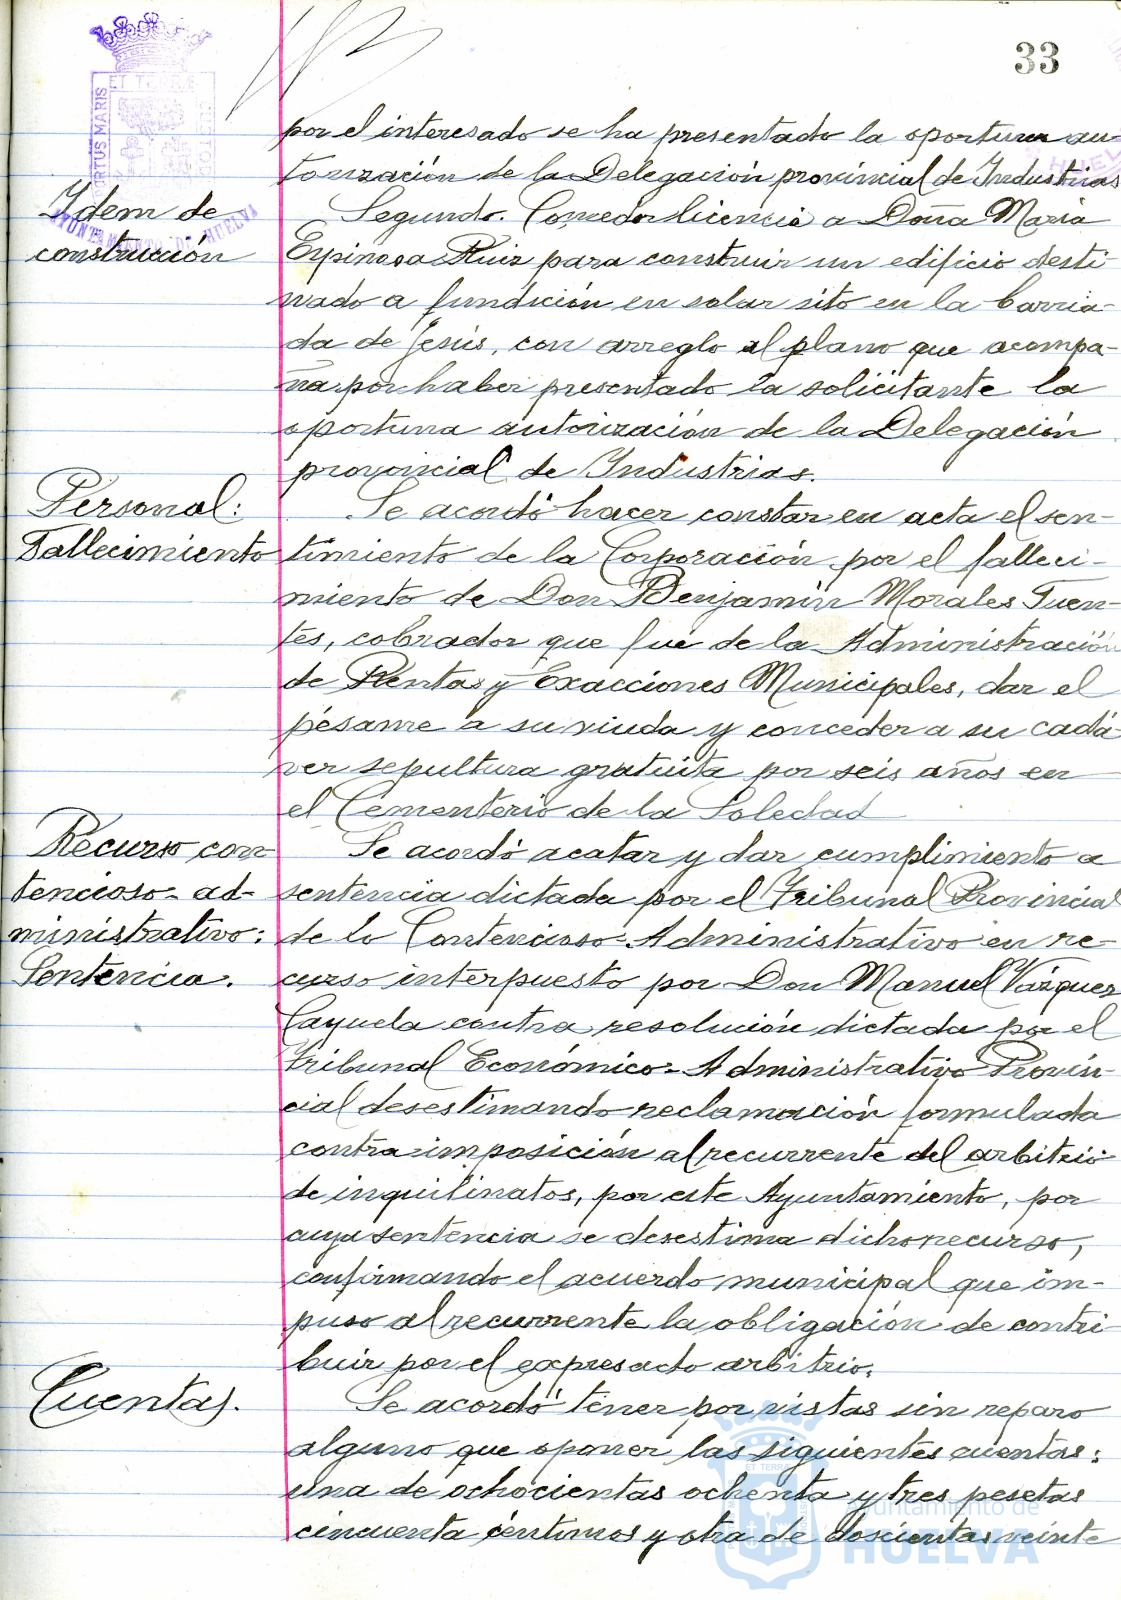 33
por el interesado se ha presentado la oportuna au-
torización de la Delegación provincial de Industrias
Idem de
construcción
Segundo. Conceder licencia a Doña María
Espinosa Ruiz para construir un edificio desti-
nado a fundición en solar sito en la barria-
da de Jesús, con arreglo al plano que acompa-
ña por haber presentado la solicitante la
oportuna autorización de la Delegación
provincial de Industrias.
Personal:
Fallecimiento
Se acordó hacer constar en acta el sen-
timiento de la Corporación por el falleci-
miento de Don Benjamín Morales Fuen-
tes, cobrador que fué de la Administración
de Rentas y Exacciones Municipales, dar el
pésame a su viuda y conceder a su cadá-
ver sepultura gratuita por seis años en
el Cementerio de la Soledad
Recurso con-
tencioso-ad-
ministrativo:
Sentencia.
Se acordó acatar y dar cumplimiento a
sentencia dictada por el Tribunal Provincial
de lo Contencioso-Administrativo en re-
curso interpuesto por Don Manuel Vázquez
Cayuela contra resolución dictada por el
Tribunal Económico-Administrativo Provin-
cial desestimando reclamación formulada
contra imposición al recurrente del arbitrio
de inquilinatos, por este Ayuntamiento, por
cuya sentencia se desestima dicho recurso,
confirmando el acuerdo municipal que im-
puso al recurrente la obligación de contri-
buir por el expresado arbitrio.
Cuentas.
Se acordó tener por vistas sin reparo
alguno que oponer las siguientes cuentas:
una de ochocientas ochenta y tres pesetas
cincuenta céntimos y otra de doscientas veinte
PORTUS MARIS
ET TERRÆ
CUSTODIA
AYUNTAMIENTO DE HUELVA
Ayuntamiento de
HUELVA